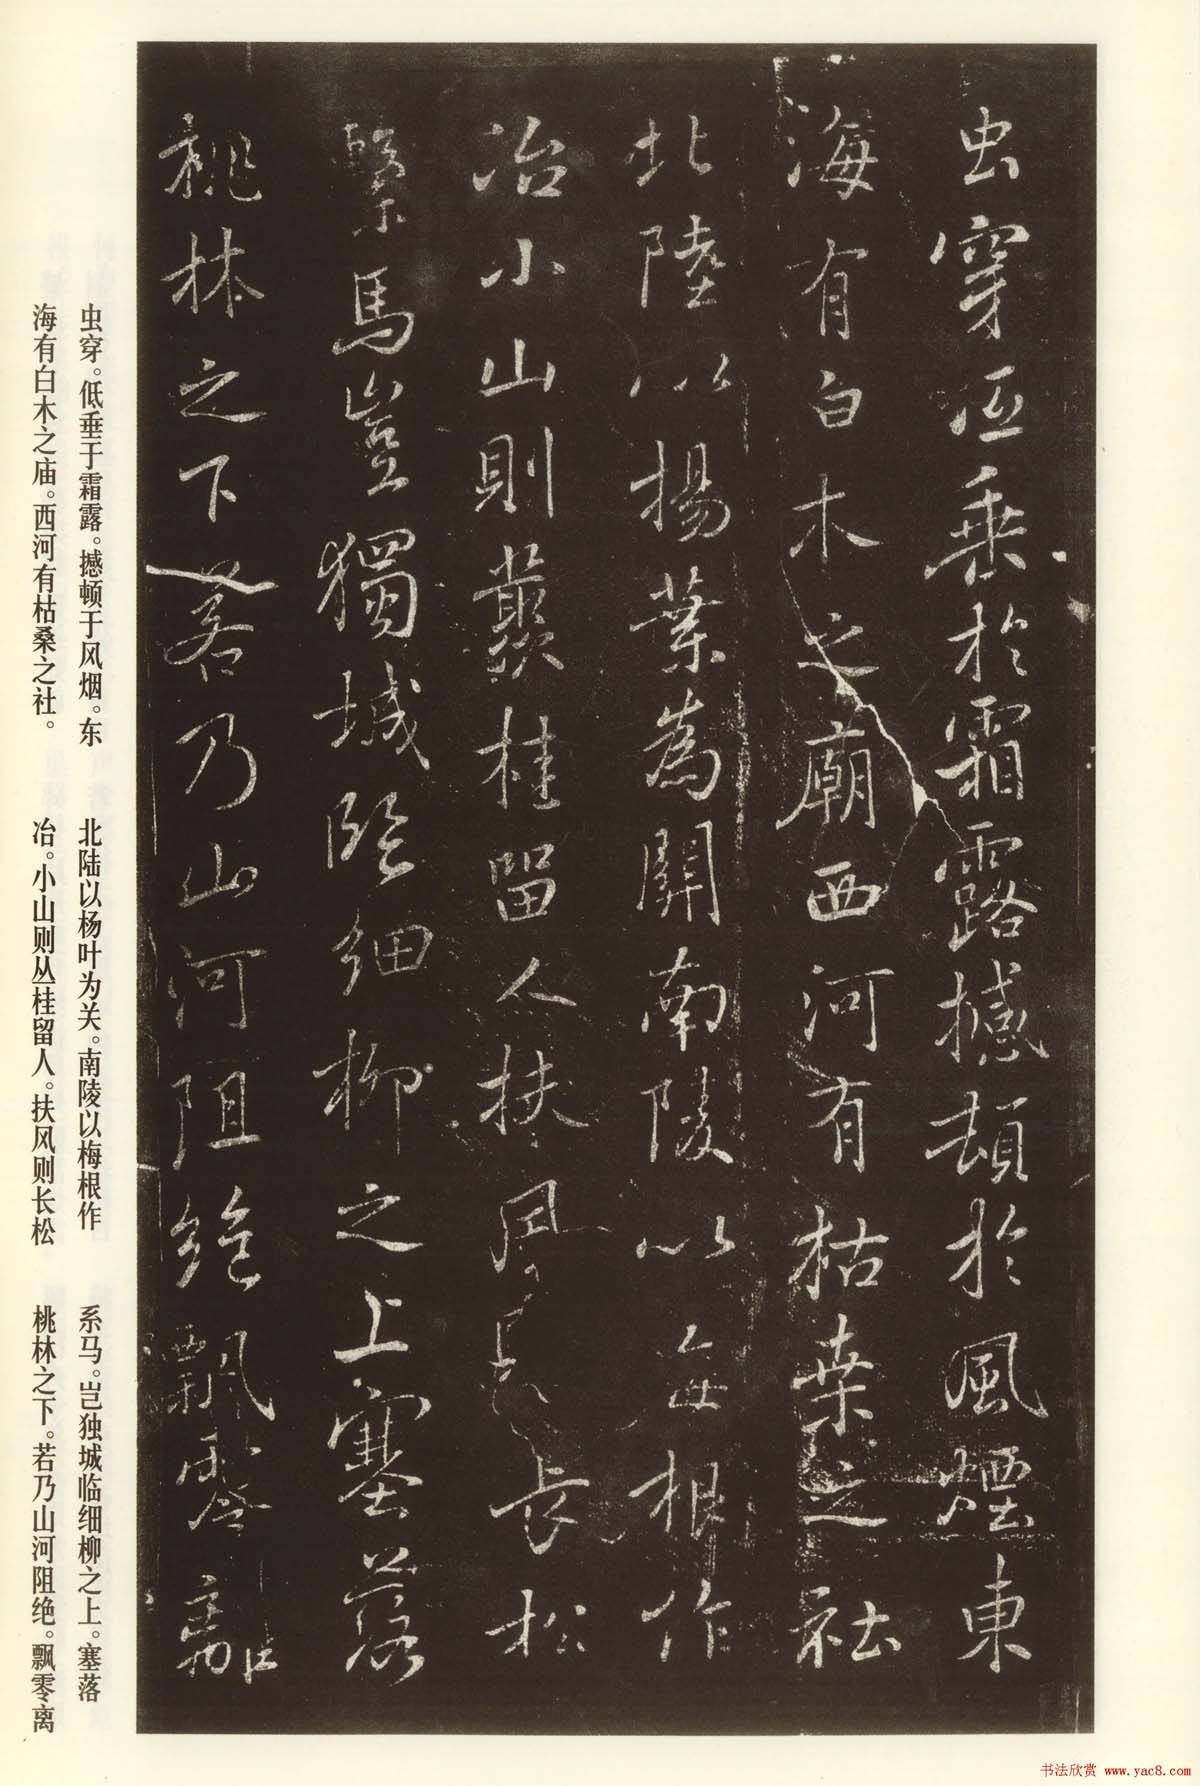 虫穿伍垂於霜露撼頓於風煙東
海有白木之廟西河有枯桒之社
北陸以楊葉為關南陵以每根作
冶小山則叢桂留人扶風則長松
繫馬豈獨城臨細柳之上塞落
桃林之下若乃山河阻絶飄零離
虫穿。低垂于霜露。撼顿于风烟。东
海有白木之庙。西河有枯桑之社。
北陆以杨叶为关。南陵以梅根作
冶。小山则丛桂留人。扶风则长松
系马。岂独城临细柳之上。塞落
桃林之下。若乃山河阻绝。飘零离
书法欣赏 www.yac8.com